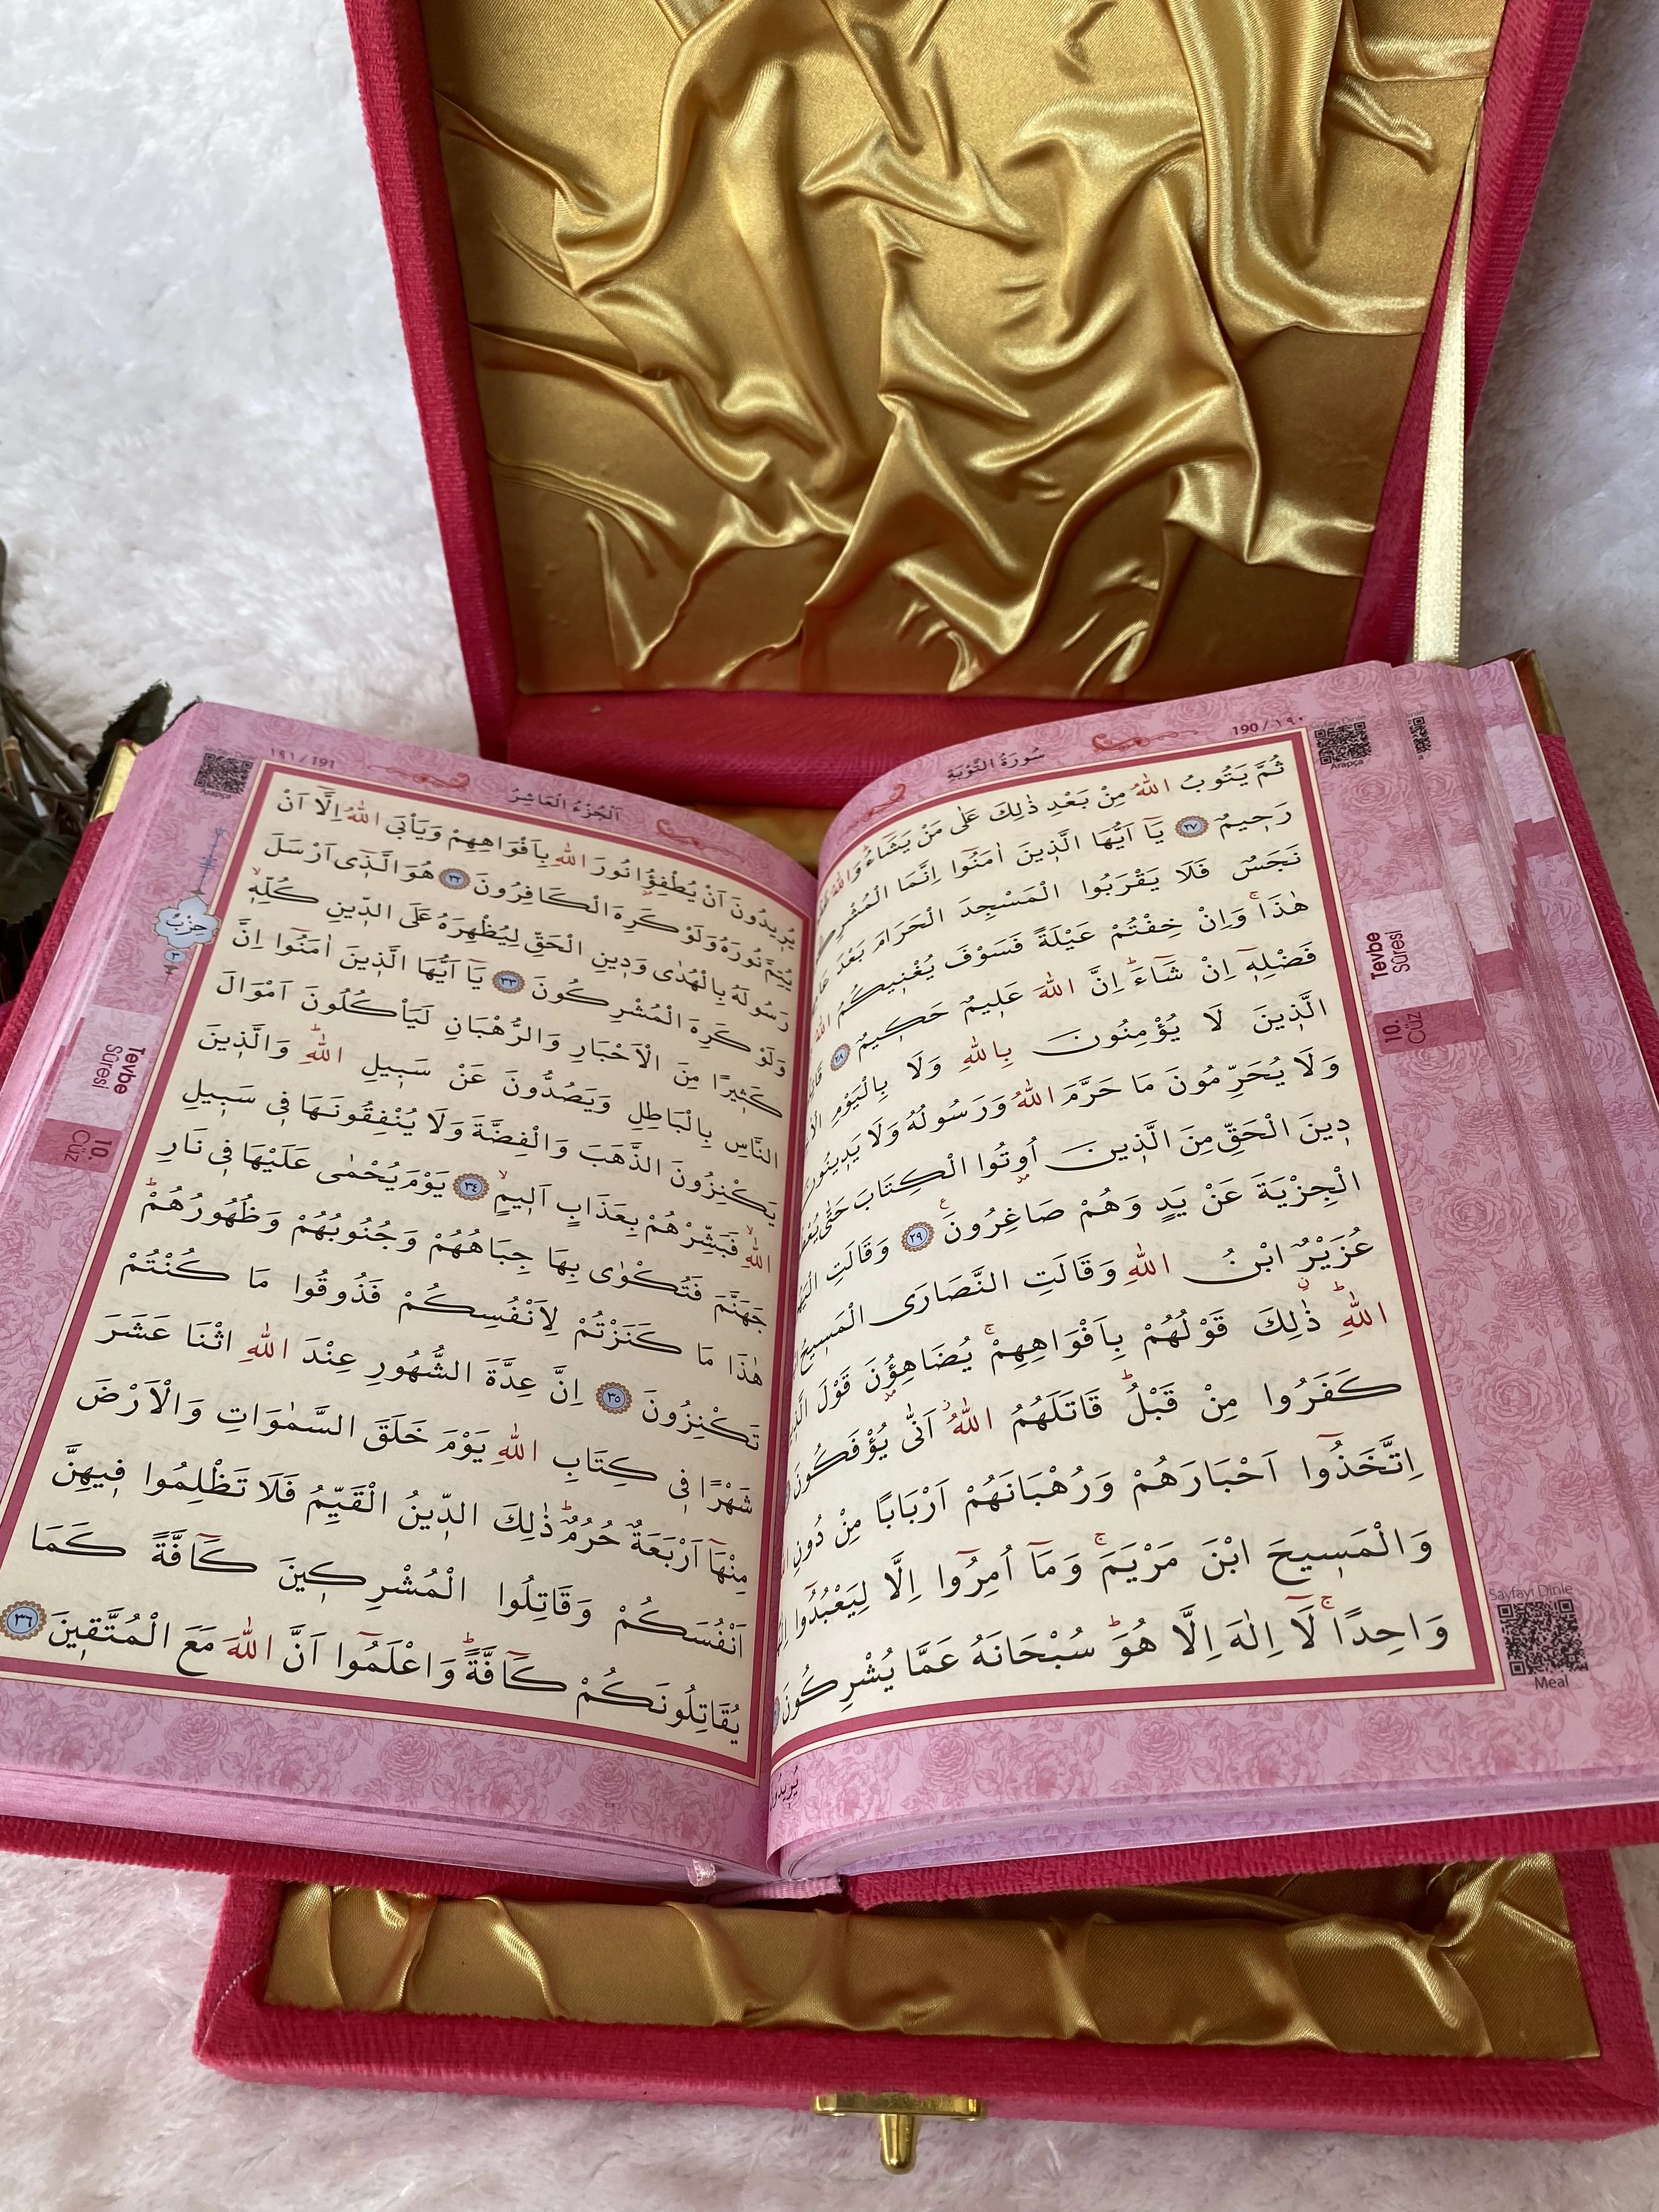 سُورَةُ التَّوْبَةِ
190 / ١٩٠
Sayfayı Dinle
Arapça
ثُمَّ يَتُوبُ اللّٰهُ مِنْ بَعْدِ ذٰلِكَ عَلٰى مَنْ يَشَٓاءُ وَاللّٰهُ
رَحٖيمٌ ﴿٢٧﴾ يَٓا اَيُّهَا الَّذٖينَ اٰمَنُٓوا اِنَّمَا
نَجَسٌ فَلَا يَقْرَبُوا الْمَسْجِدَ الْحَرَامَ بَعْدَ
هٰذَاۚ وَاِنْ خِفْتُمْ عَيْلَةً فَسَوْفَ يُغْنٖيكُمُ اللّٰهُ
فَضْلِهٖٓ اِنْ شَٓاءَؕ اِنَّ اللّٰهَ عَلٖيمٌ حَكٖيمٌ ﴿٢٨﴾
الَّذٖينَ لَا يُؤْمِنُونَ بِاللّٰهِ وَلَا بِالْيَوْمِ
وَلَا يُحَرِّمُونَ مَا حَرَّمَ اللّٰهُ وَرَسُولُهُ وَلَا يَدٖينُونَ
دٖينَ الْحَقِّ مِنَ الَّذٖينَ اُو۫تُوا الْكِتَابَ حَتّٰى
الْجِزْيَةَ عَنْ يَدٍ وَهُمْ صَاغِرُونَ ﴿٢٩﴾ وَقَالَتِ
عُزَيْرٌ ابْنُ اللّٰهِ وَقَالَتِ النَّصَارَى الْمَسٖيحُ
اللّٰهِؕ ذٰلِكَ قَوْلُهُمْ بِاَفْوَاهِهِمْۚ يُضَاهِؤُ۫نَ قَوْلَ
كَفَرُوا مِنْ قَبْلُؕ قَاتَلَهُمُ اللّٰهُؗ اَنّٰى يُؤْفَكُونَ
اِتَّخَذُٓوا اَحْبَارَهُمْ وَرُهْبَانَهُمْ اَرْبَابًا مِنْ دُونِ
وَالْمَسٖيحَ ابْنَ مَرْيَمَۚ وَمَٓا اُمِرُٓوا اِلَّا لِيَعْبُدُٓوا
وَاحِدًاۚ لَٓا اِلٰهَ اِلَّا هُوَؕ سُبْحَانَهُ عَمَّا يُشْرِكُونَ
Tevbe
Sûresi
10.
Cüz
Sayfayı Dinle
Meal
اَلْجُزْءُ الْعَاشِرُ
١٩١ / 191
Arapça
يُرٖيدُونَ اَنْ يُطْفِؤُ۫ا نُورَ اللّٰهِ بِاَفْوَاهِهِمْ وَيَاْبَى اللّٰهُ اِلَّٓا اَنْ
يُتِمَّ نُورَهُ وَلَوْ كَرِهَ الْكَافِرُونَ ﴿٣٢﴾ هُوَ الَّذٖٓى اَرْسَلَ
رَسُولَهُ بِالْهُدٰى وَدٖينِ الْحَقِّ لِيُظْهِرَهُ عَلَى الدّٖينِ كُلِّهٖۙ
وَلَوْ كَرِهَ الْمُشْرِكُونَ ﴿٣٣﴾ يَٓا اَيُّهَا الَّذٖينَ اٰمَنُٓوا اِنَّ
كَثٖيرًا مِنَ الْاَحْبَارِ وَالرُّهْبَانِ لَيَاْكُلُونَ اَمْوَالَ
النَّاسِ بِالْبَاطِلِ وَيَصُدُّونَ عَنْ سَبٖيلِ اللّٰهِؕ وَالَّذٖينَ
يَكْنِزُونَ الذَّهَبَ وَالْفِضَّةَ وَلَا يُنْفِقُونَهَا فٖى سَبٖيلِ
اللّٰهِۙ فَبَشِّرْهُمْ بِعَذَابٍ اَلٖيمٍۙ ﴿٣٤﴾ يَوْمَ يُحْمٰى عَلَيْهَا فٖى نَارِ
جَهَنَّمَ فَتُكْوٰى بِهَا جِبَاهُهُمْ وَجُنُوبُهُمْ وَظُهُورُهُمْؕ
هٰذَا مَا كَنَزْتُمْ لِاَنْفُسِكُمْ فَذُوقُوا مَا كُنْتُمْ
تَكْنِزُونَ ﴿٣٥﴾ اِنَّ عِدَّةَ الشُّهُورِ عِنْدَ اللّٰهِ اثْنَا عَشَرَ
شَهْرًا فٖى كِتَابِ اللّٰهِ يَوْمَ خَلَقَ السَّمٰوَاتِ وَالْاَرْضَ
مِنْهَٓا اَرْبَعَةٌ حُرُمٌؕ ذٰلِكَ الدّٖينُ الْقَيِّمُ فَلَا تَظْلِمُوا فٖيهِنَّ
اَنْفُسَكُمْ وَقَاتِلُوا الْمُشْرِكٖينَ كَٓافَّةً كَمَا
يُقَاتِلُونَكُمْ كَٓافَّةًؕ وَاعْلَمُٓوا اَنَّ اللّٰهَ مَعَ الْمُتَّقٖينَ ﴿٣٦﴾
حِزْبٌ
٣
Tevbe
Sûresi
10.
Cüz